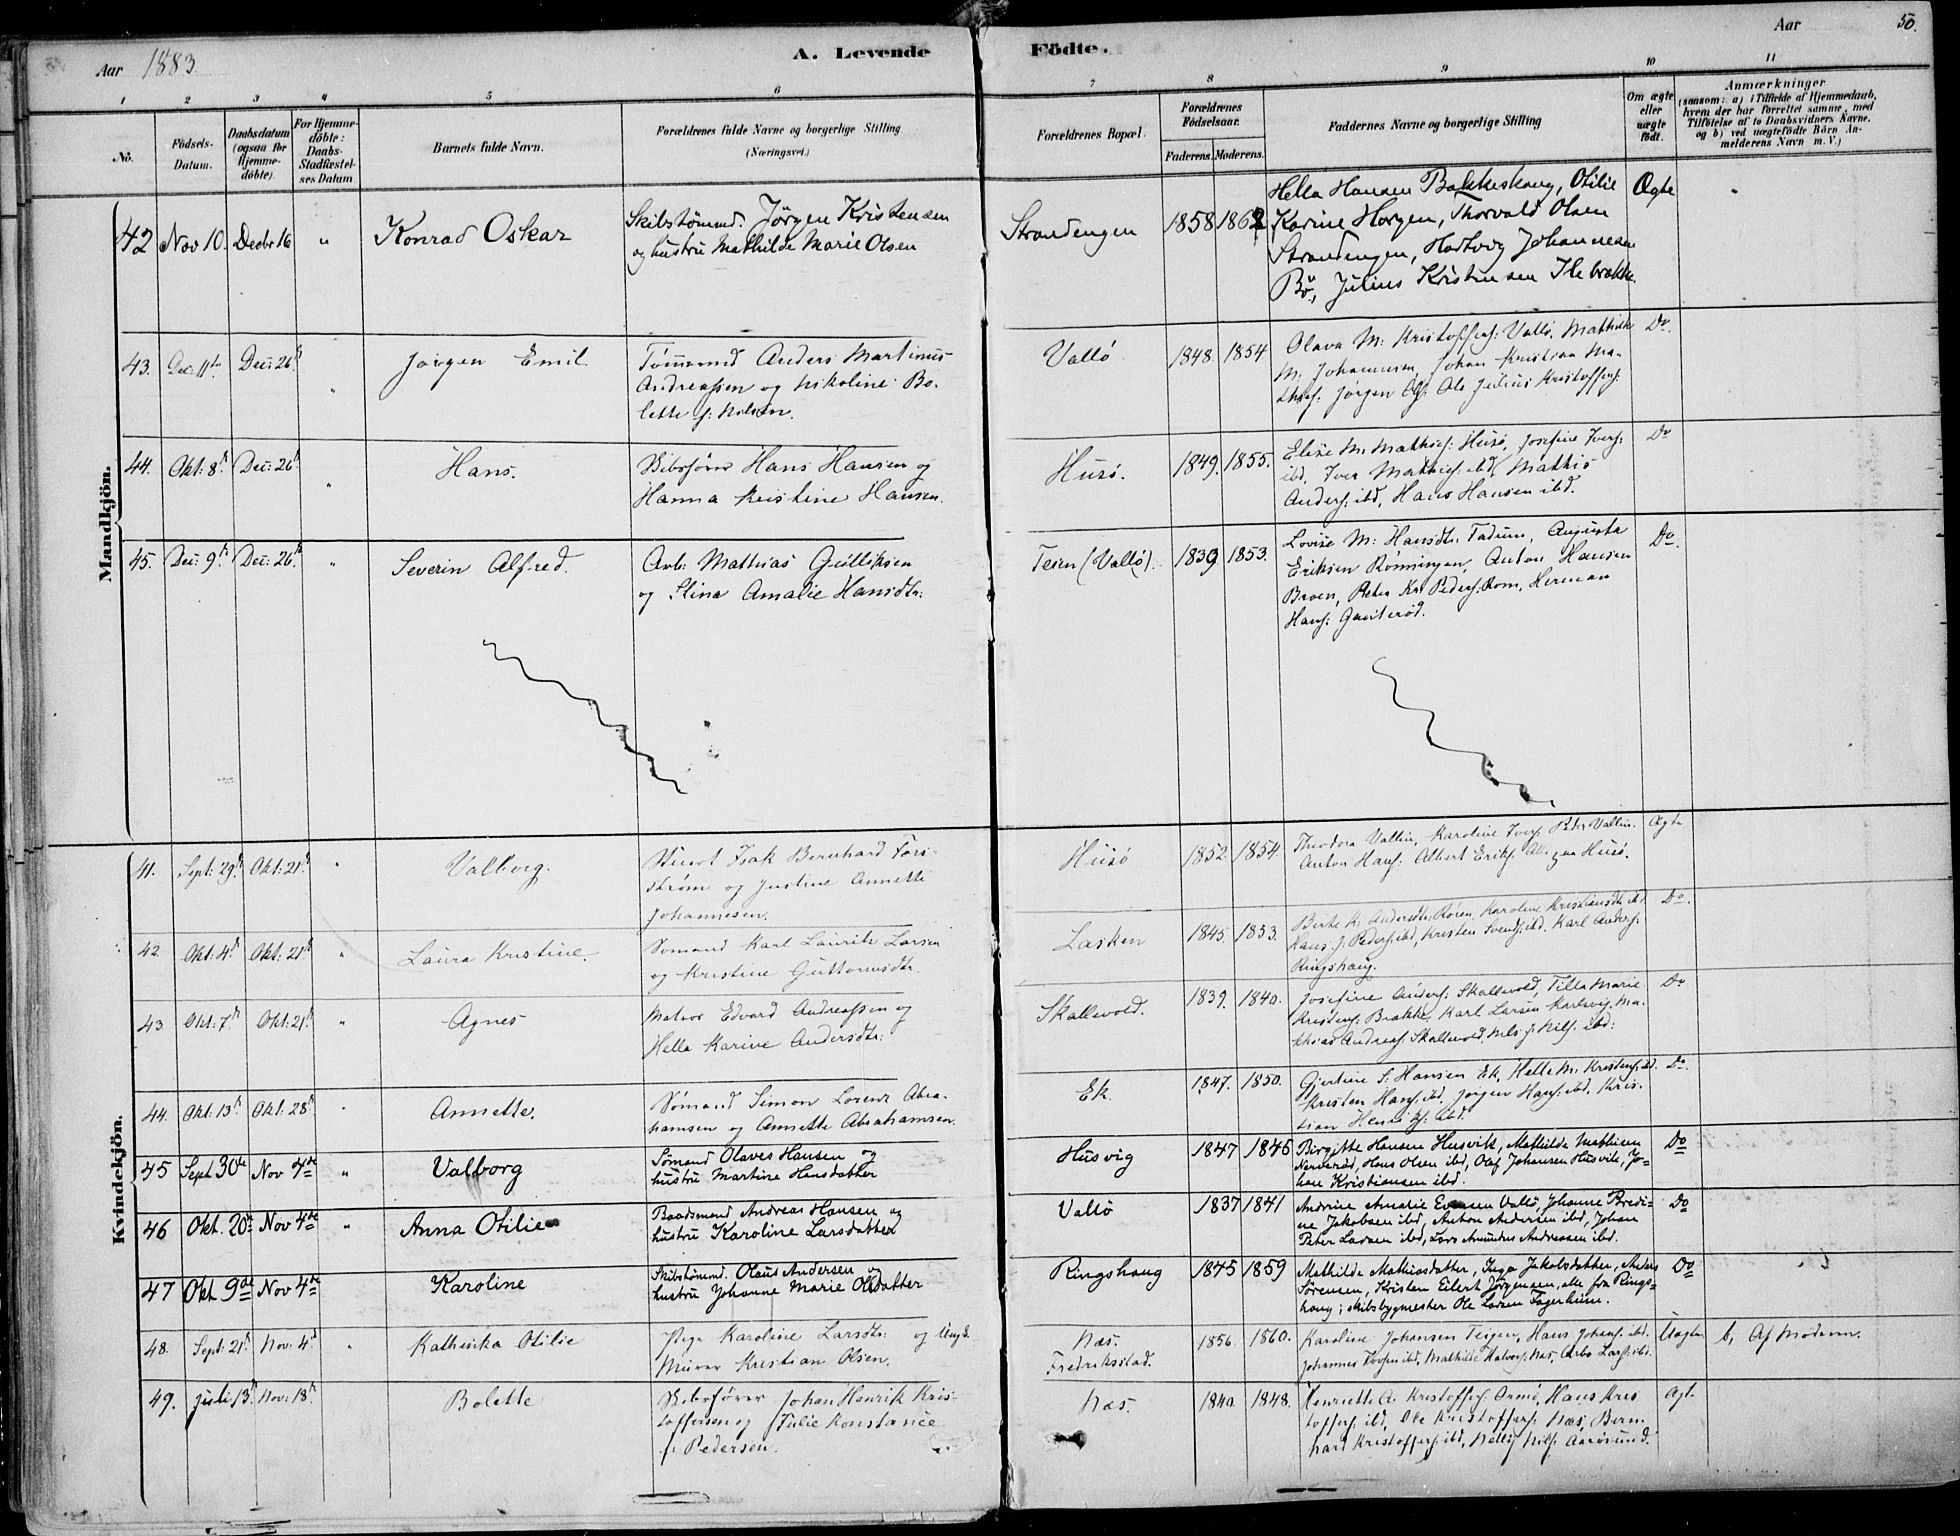 Aar 1883.
A. Levende Födte.
Aar
50.
1 2 3 4 5 6 7 8 9 10 11
No.
Födsels-Datum.
Daabsdatum (ogsaa for Hjemme-döbte).
For Hjemme-döbte: Daabs-Stadfæstel-ses Datum
Barnets fulde Navn.
Forældrenes fulde Navne og borgerlige Stilling
(Næringsvei.)
Forældrenes Bopæl.
Forældrenes Födselsaar.
Faderens. Moderens.
Faddernes Navne og borgerlige Stilling
Om ægte eller uægte födt.
Anmærkninger
(saasom: a) i Tilfælde af Hjemmedaab, hvem der har forrettet samme, med Tilföielse af to Daabsvidners Navne. og b) ved uægtefödte Börn An-melderens Navn m. V.)
Mandkjön.
42 Nov 10. Decbr 16 " Konrad Oskar
Skibstömmd. Jörgen Kristensen
og hustru Mathilde Marie Olsen
Strandengen 1858 1862
Hella Hansen Bakkeskaug, Otilie
Karine Horgen, Thorvald Olsen
Strandengen, Hartvig Johannesen
Bö, Julius Kristensen Ilebrække.
Ægte
43. Dec: 11te Dec: 26de " Jørgen Emil
Tømmermd Anders Martinus
Andreassen og Nikoline Bo-
lette f: Nilsen.
Vallö 1848. 1854
Olava M: Kristoffers: Vallö, Mathilde
M. Johannesen, Johan Kristian Ma-
this: Jørgen Ols: Ole Julius Kristoffers:
Do.
44. Okt: 8de Dec: 26de " Hans.
Skibsfører Hans Hansen og
Hanna Kristine Hansen.
Husö. 1849. 1855.
Elise M: Mathis: Husö, Josefine Ivers:
ibd. Iver Mathis: ibd, Mathis
Anders: ibd, Hans Hansen ibd.
Do
45. Dec: 9de Dec: 26de " Severin Alfred.
Arb: Mathias Gulliksen
og Stina Amalie Hansdtr:
Teien (Vallö). 1839 1853.
Lovise M: Hansdtr: Tadum, Augusta
Eriksen Rønningen, Anton Hansen
Broen, Peter Kr. Peders: Rom, Herman
Hans: Gauterød.
Do.
Kvindekjön.
41. Sept: 29de Okt: 21de " Valborg.
Stuert Isak Bernhard Fors-
strøm og Justine Annette
Johannesen.
Husö 1852. 1854.
Theodora Vallin, Karoline Ivers: Peder Vallin.
Anton Hans: Albert Eriks: Alle paa Husö.
Ægte
42. Okt: 4de Okt: 21de " Laura Kristine.
Sømand Karl Lauritz Larsen
og Kristine Guttormsdtr.
Lasken 1845. 1853.
Berte K: Andersdtr: Røren, Karoline Kristiansdtr ibd
Hans J: Peders: ibd, Kristen Svends: ibd. Karl Anders:
Ringshaug.
Do.
43. Okt: 7de Okt: 21de " Agnes
Matros Edvard Andreassen og
Hella Karine Andersdtr:
Skallevold. 1839. 1840.
Josefine Anders: Skallevold, Tilla Marie
Kristens: Brække, Karl Larsen Karlsvig, Ma-
thias Andreas: Skallevold, Nils J: Nils: ibd:
Do
44. Okt: 13de Okt: 28de " Annette.
Sømand Simon Lorenz Abra-
hamsen og Annette Abrahamsen.
Ek. 1847. 1850.
Gjertine S: Hansen Ek, Helle M: Kristens: ibd.
Kristen Hans: ibd, Jørgen Hans: ibd, Kris-
tian Henriks: ibd.
Do
45 Sept 30te Nov 4de " Valborg
Sömand Olaves Hansen og
hustru Martine Hansdatter
Husvig 1847 1845
Birgitte Hansen Husvik, Mathilde Mathisen
Narverød, Hans Olsen ibd, Olaf Johansen Husvik, Jo-
han Kristiansen ibd.
Do
46 Okt. 20de Nov 4de " Anna Otilie
Baadsmand Andreas Hansen og
hustru Karoline Larsdatter
Vallö 1837 1841
Andrine Amalie Evensen Vallö, Johanne Bredi-
ne Jakobsen ibd, Anton Andersen ibd, Johan
Peter Larsen ibd, Lars Amundus Andreassen ibd.
Do
47 Okt 9de Nov 4de Karoline
Skibstömmd. Olaus Andersen og
hustru Johanne Marie Olsdatter
Ringshaug 1845 1859
Mathilde Mathiasdatter, Inga Jakobsdatter, Anders
Sörensen, Kristen Eilert Jörgensen, alle fra Rings-
haug; skibsbygmester Ole Larsen Fagerheim.
Do
48. Sept: 21de Nov: 4de " Kathinka Otilie
Pige Karoline Larsdtr: og Ungk.
Murer Kristian Olsen.
Næs.
Fredriksstad. 1856. 1860.
Karoline Johansen Teigen, Hans Johans: ibd.
Johannes Torgers ibd, Mathilde Halvors: Næs, Arbo Lars: ibd.
Uægte
b, Af Moderen.
49. Juli 13de Nov: 18de Bolette
Skibsfører Johan Henrik Kris-
toffersen og Julie Konstance
f: Pedersen.
Næs. 1840. 1848.
Henriette A: Kristoffers: Ormö, Hans Kris
toffers: ibd, Ole Kristoffers: Næs, Bern-
hard Kristoffers: ibd, Nelly Nils: Aarösund.
Ægt.